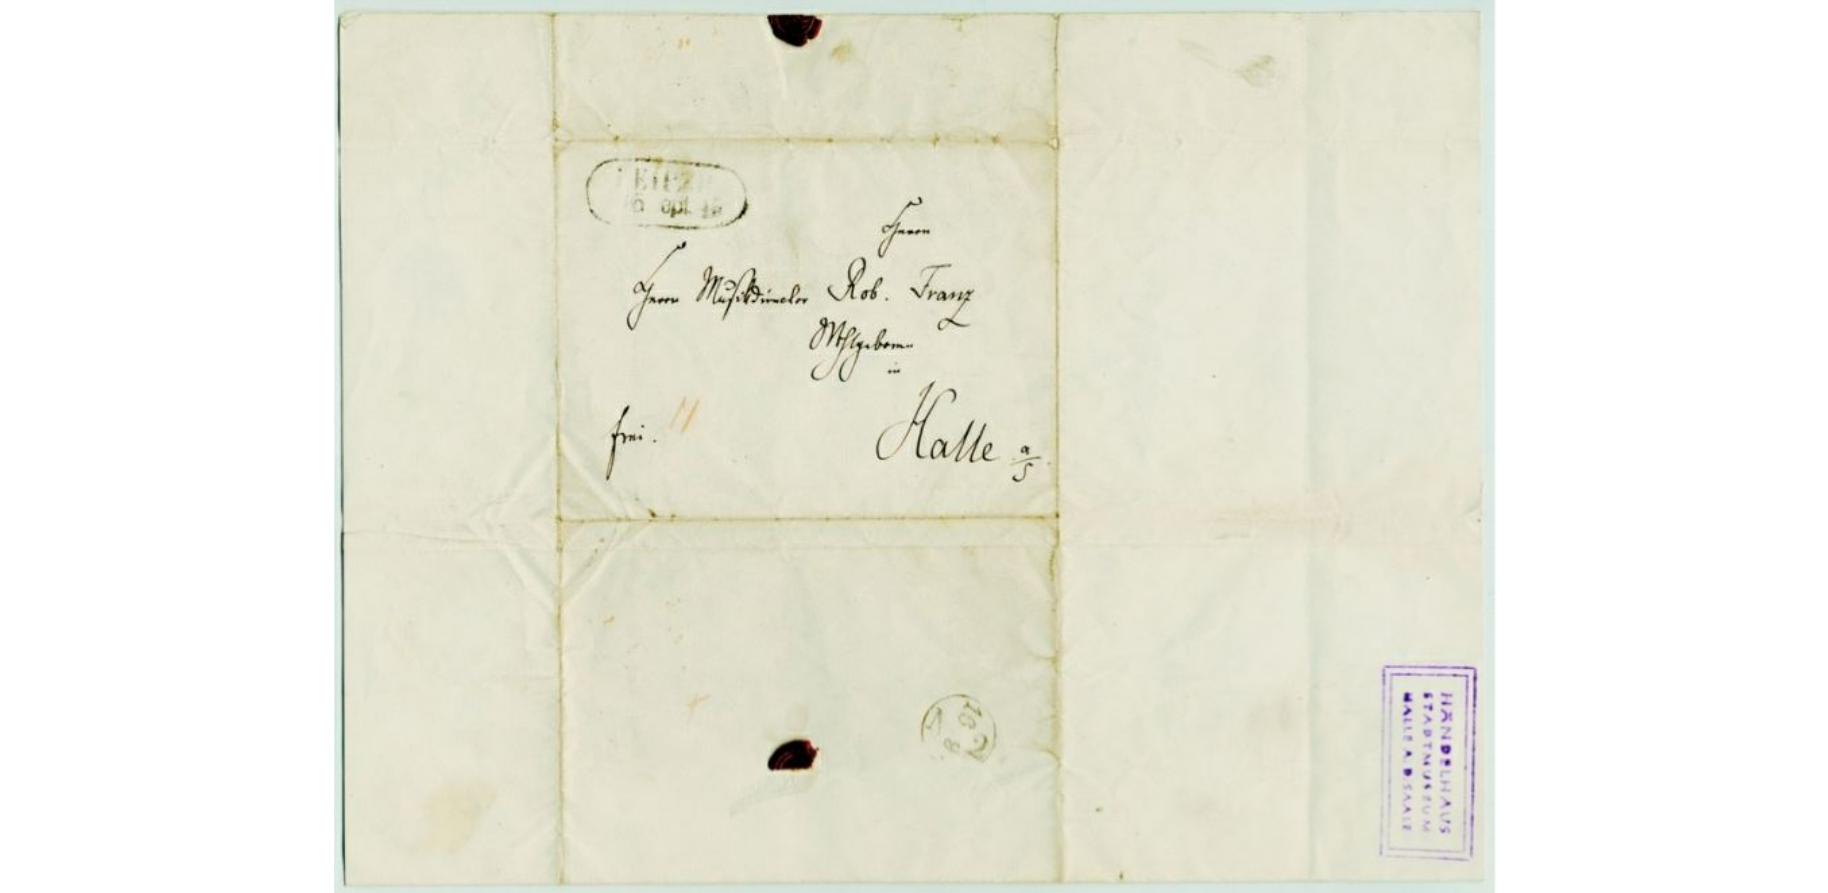 LEIPZ
Herrn
Herrn Musikdirector Rob. Franz
Wohlgeboren
in
frei.
Halle a/S.
HÄNDELHAUS
STADTMUSEUM
HALLE A. D. SAALE